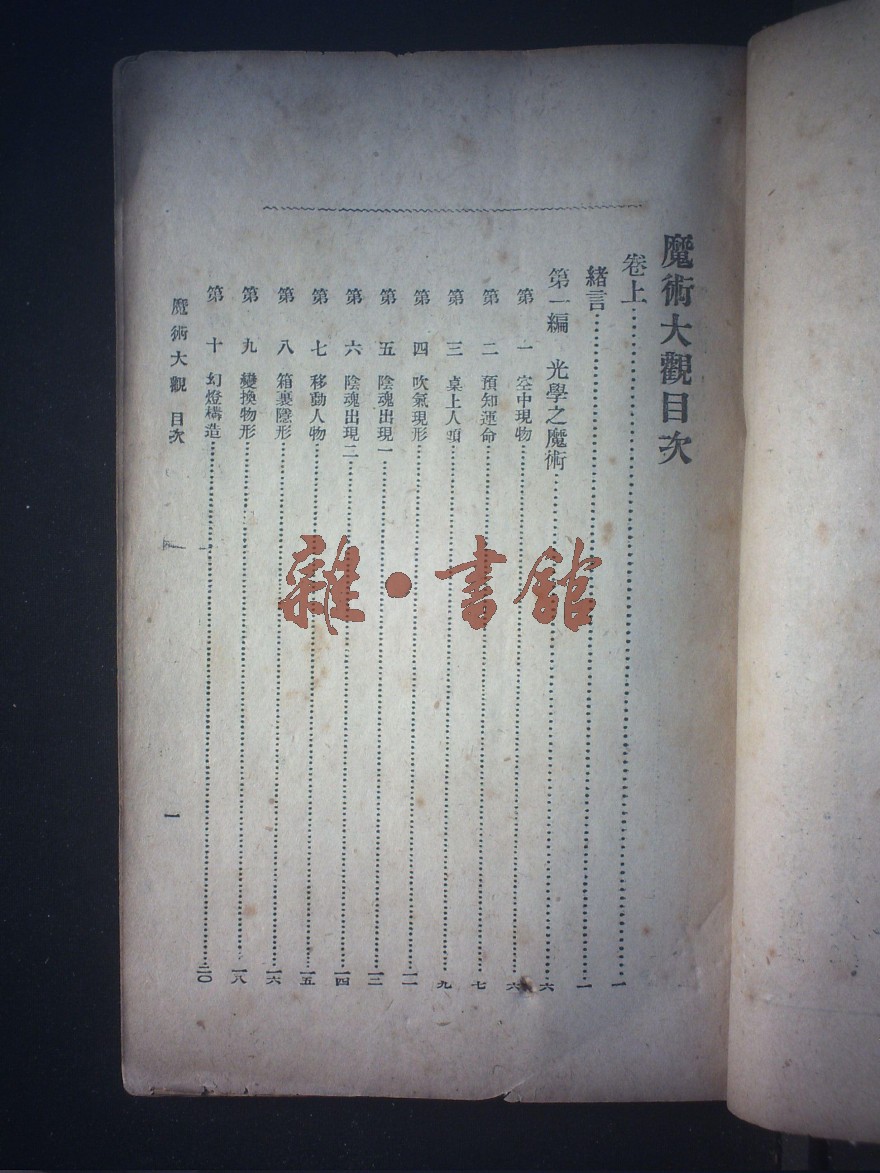 魔術大觀目次
卷上……一
緒言……一
第一編 光學之魔術……六
第一 空中現物……六
第二 預知運命……七
第三 桌上人頭……九
第四 吹氣現形……一二
第五 陰魂出現一……一三
第六 陰魂出現二……一四
第七 移動人物……一五
第八 箱裏隱形……一六
第九 變換物形……一八
第十 幻燈構造……二〇
魔術大觀 目次
一
雜·書館